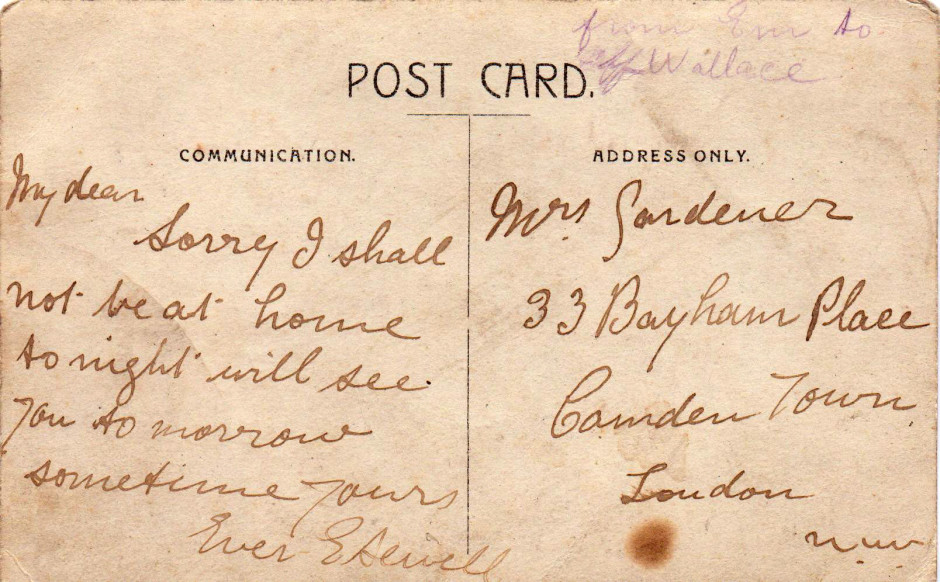 from Em to
Alf Wallace
POST CARD.
COMMUNICATION.
My dear
Sorry I shall
not be at home
to night will see
you to morrow
sometime yours
Ever E Sewell
ADDRESS ONLY.
Mrs Gardener
33 Bayham Place
Camden Town
London
N.W